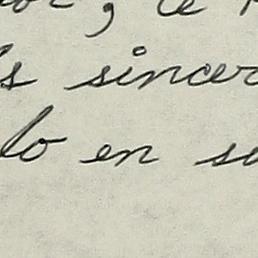 , te
s sincer
lo en s